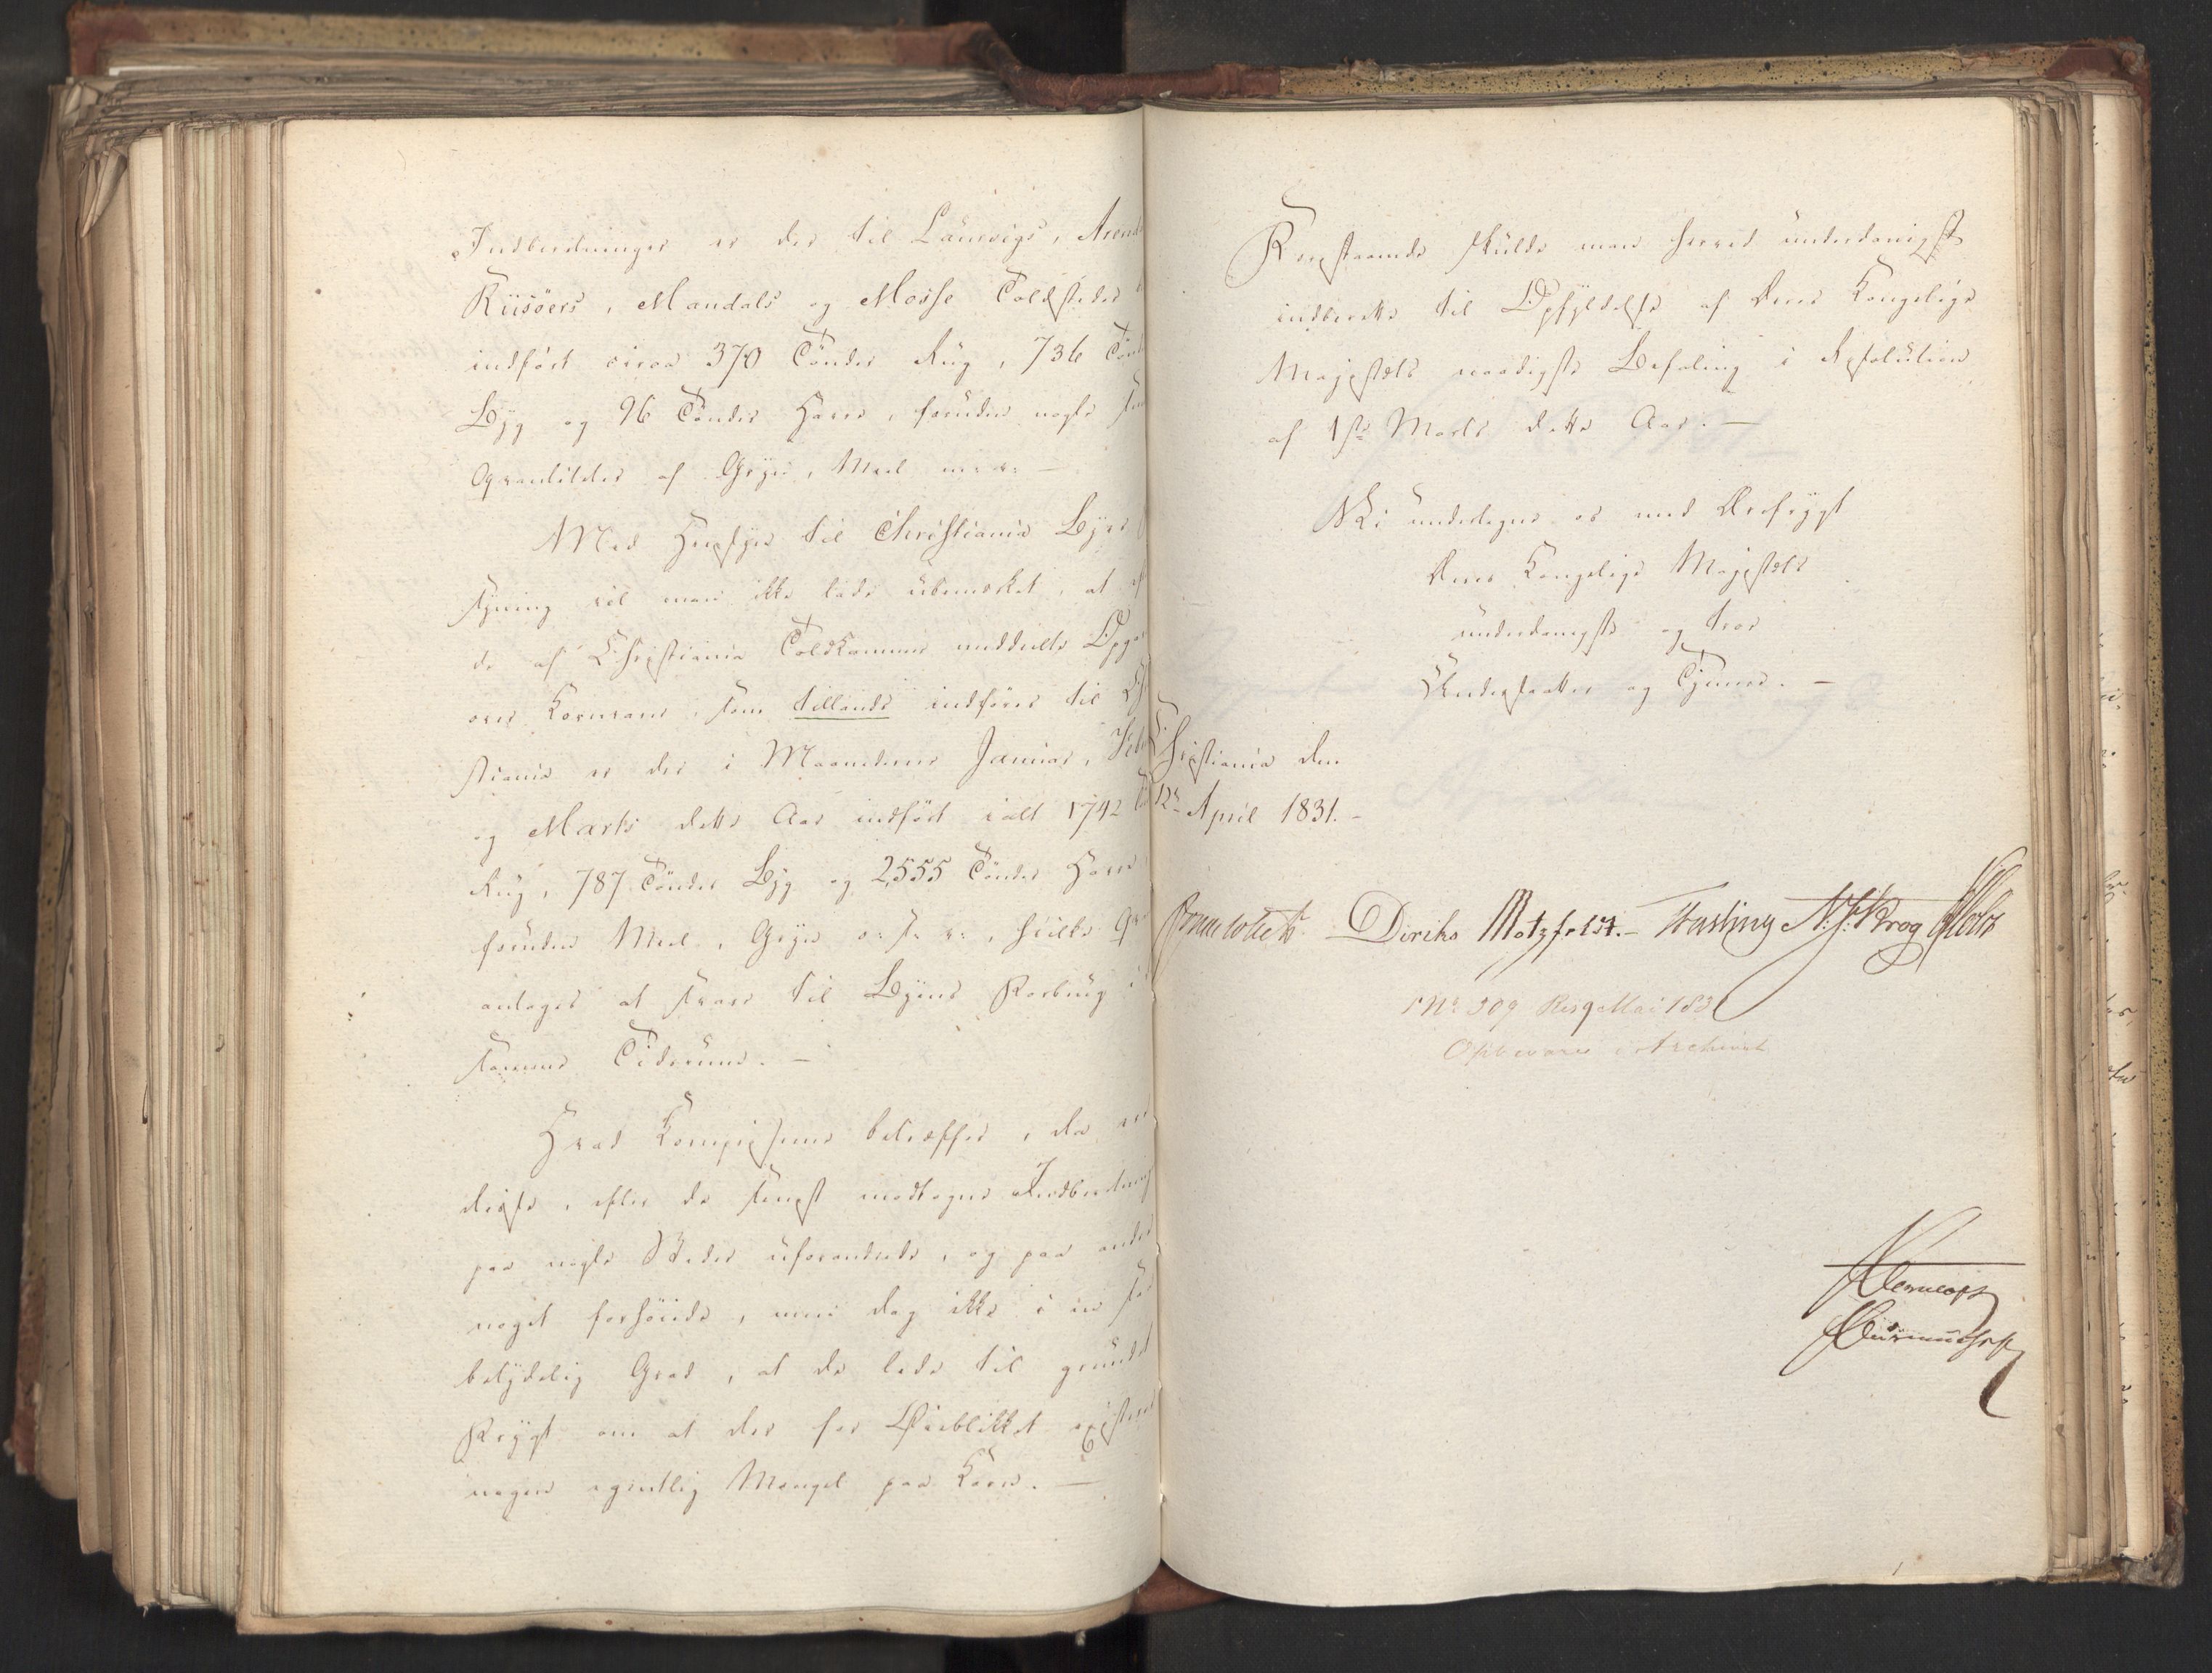 Indberetninger er der til Laurvigs, Arend
Riisøers, Mandals og Mosse Toldsteder
indført circa 370 Tønder Rug, 736 Tønd
Byg og 96 Tønder Havre, foruden nogle
Qvantiteter af Gryn, Meel m: v: —
Med Hensyn til Christiania Byes
syning vil man ikke lade ubemærket, at
de af Christiania Toldkammer meddeelte Opga
over Kornvare, som tillands indføres til Ch
stiania er der i Maanederne Januar, Feb
og Marts dette Aar indført i alt 1742 Tø
Rug, 787 Tønder Byg og 2,555 Tønder Havre
foruden Meel, Gryn o: s: v:, hvilke Qv
antages at svare til Byens Forbrug i
samme Tidsrum. —
Hvad Kornpriserne betræffer, da er
disse, efter de senest modtagne Indberetning
paa nogle Steder uforandrede, og paa andre
noget forhøiede, men dog ikke i en saa
betydelig Grad, at de lede til grundet
Frygt om at der for Øieblikket existerer
nogen egentlig Mangel paa Korn. —
Forestaaende skulde man herved underdanigst
indberette til Opfyldelse af Deres Kongelige
Majestæts naadigste Befaling i Resolution
af 1ste Marts dette Aar. —
Vi undertegne os med Ærefrygt
Deres Kongelige Majestæts
underdanigste og troe
Undersaatter og Tjenere. —
Christiania den
12te April 1831. –
Diriks Motzfeldt. – Fasting N. J. Krog
No 309 Res 9 Mai 1831
Opbevares i Archivet